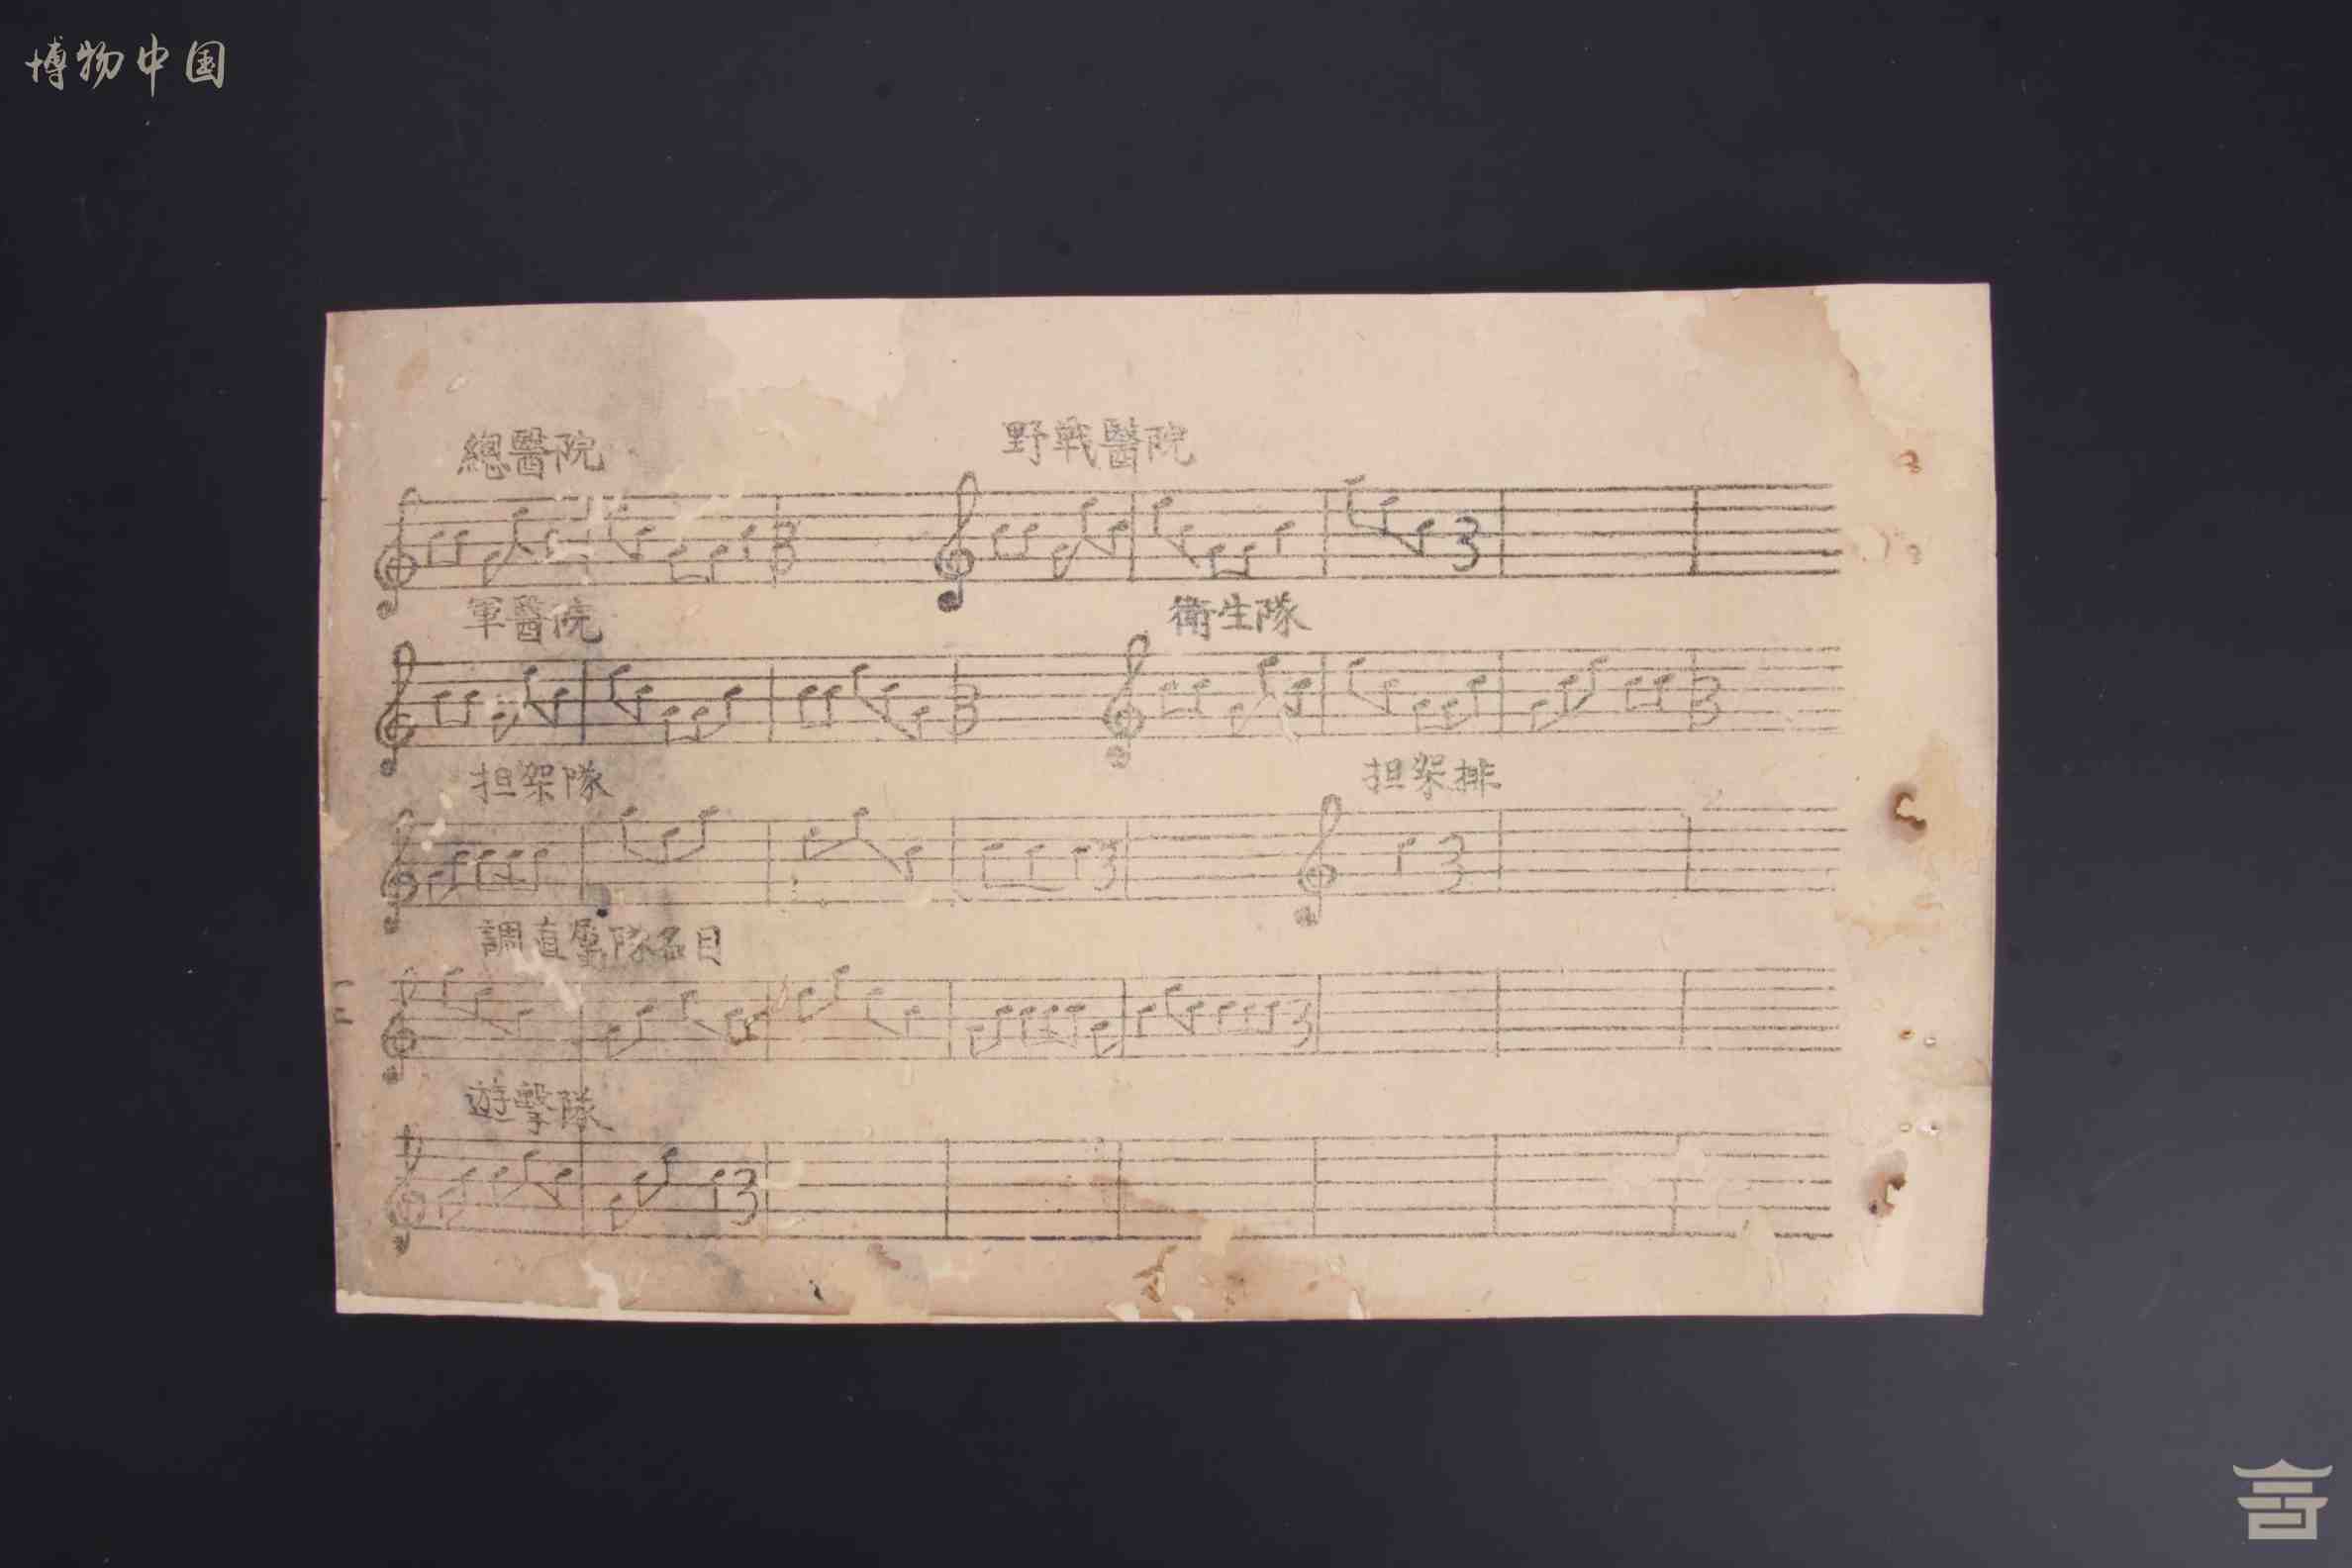 博物中国
總醫院 野戰醫院
軍醫院 衛生隊
担架隊 担架排
調直屬隊名目
遊擊隊